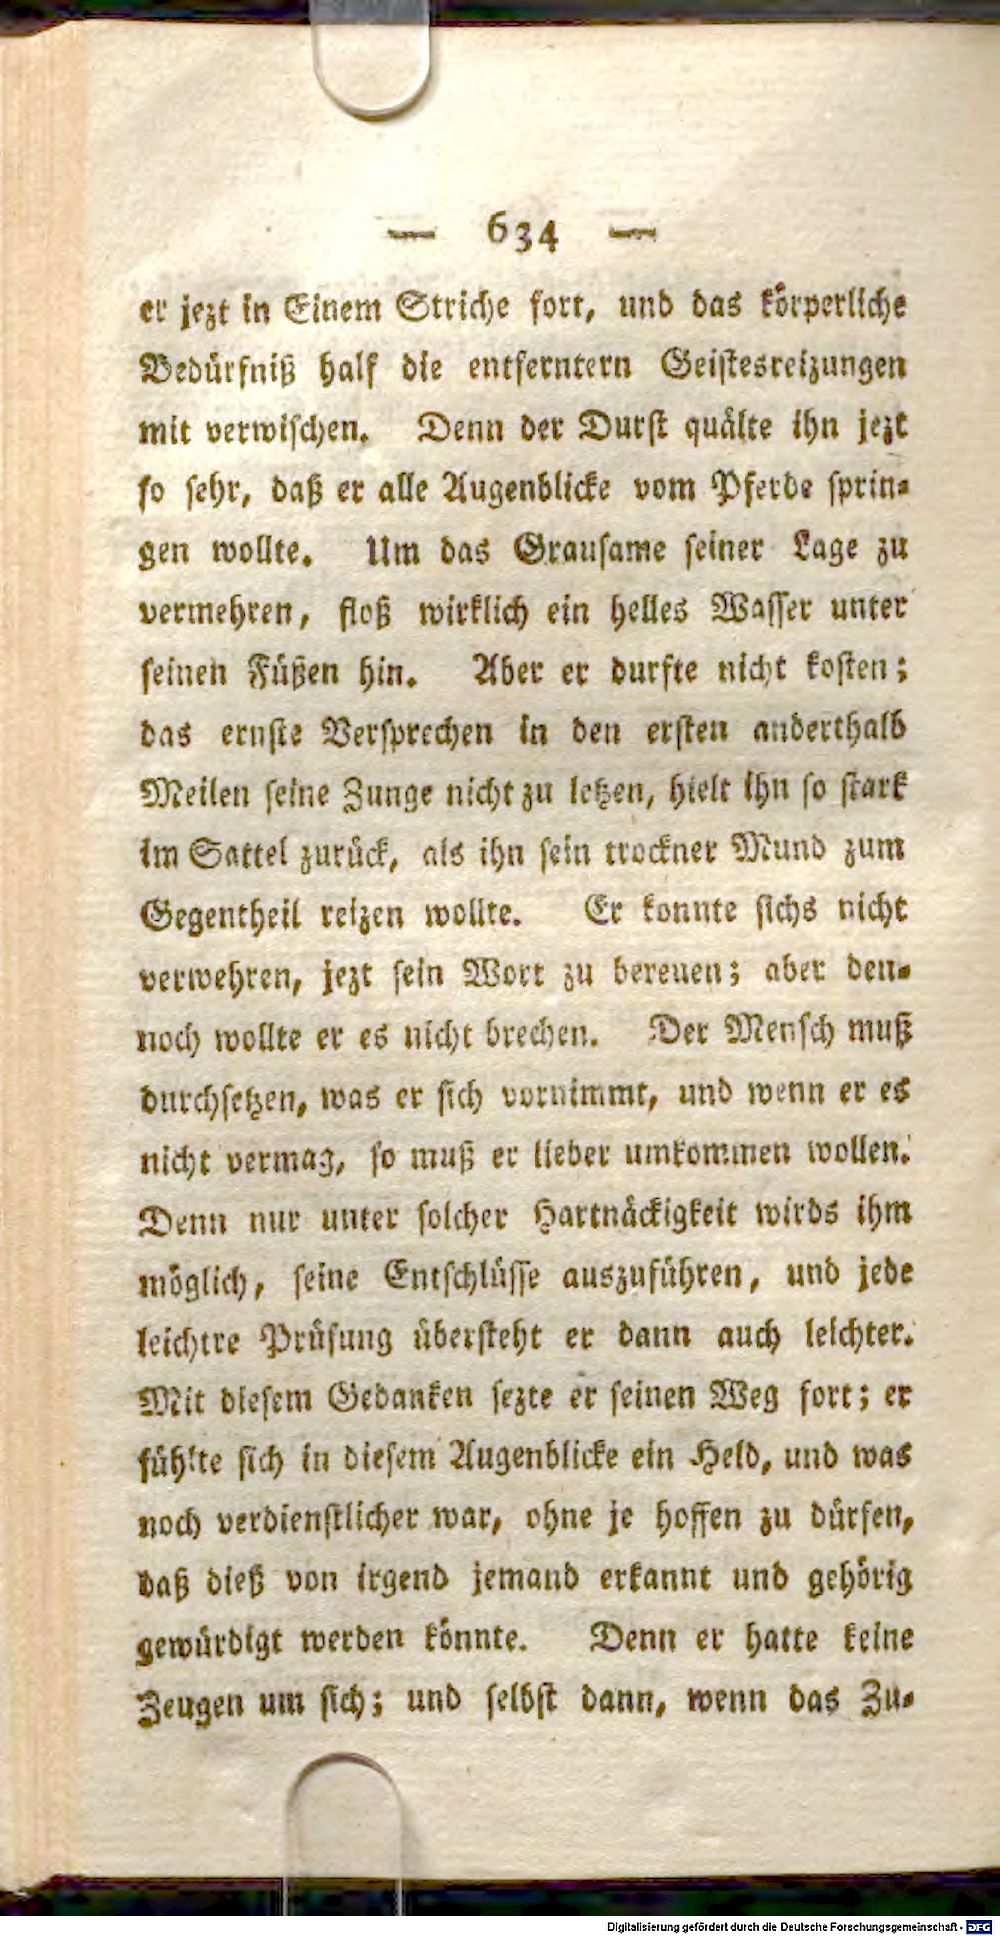 — 634 —
er jezt in Einem Striche fort, und das körperliche
Bedürfniß half die entferntern Geistesreizungen
mit verwischen. Denn der Durst quälte ihn jezt
so sehr, daß er alle Augenblicke vom Pferde sprin-
gen wollte. Um das Grausame seiner Lage zu
vermehren, floß wirklich ein helles Wasser unter
seinen Füßen hin. Aber er durfte nicht kosten;
das ernste Versprechen in den ersten anderthalb
Meilen seine Zunge nicht zu letzen, hielt ihn so stark
im Sattel zurück, als ihn sein trockner Mund zum
Gegentheil reizen wollte. Er konnte sichs nicht
verwehren, jezt sein Wort zu bereuen; aber den-
noch wollte er es nicht brechen. Der Mensch muß
durchsetzen, was er sich vornimmt, und wenn er es
nicht vermag, so muß er lieber umkommen wollen.
Denn nur unter solcher Hartnäckigkeit wirds ihm
möglich, seine Entschlüsse auszuführen, und jede
leichtre Prüfung übersteht er dann auch leichter.
Mit diesem Gedanken sezte er seinen Weg fort; er
fühlte sich in diesem Augenblicke ein Held, und was
noch verdienstlicher war, ohne je hoffen zu dürfen,
daß dieß von irgend jemand erkannt und gehörig
gewürdigt werden könnte. Denn er hatte keine
Zeugen um sich; und selbst dann, wenn das Zu-
Digitalisierung gefördert durch die Deutsche Forschungsgemeinschaft - DFG